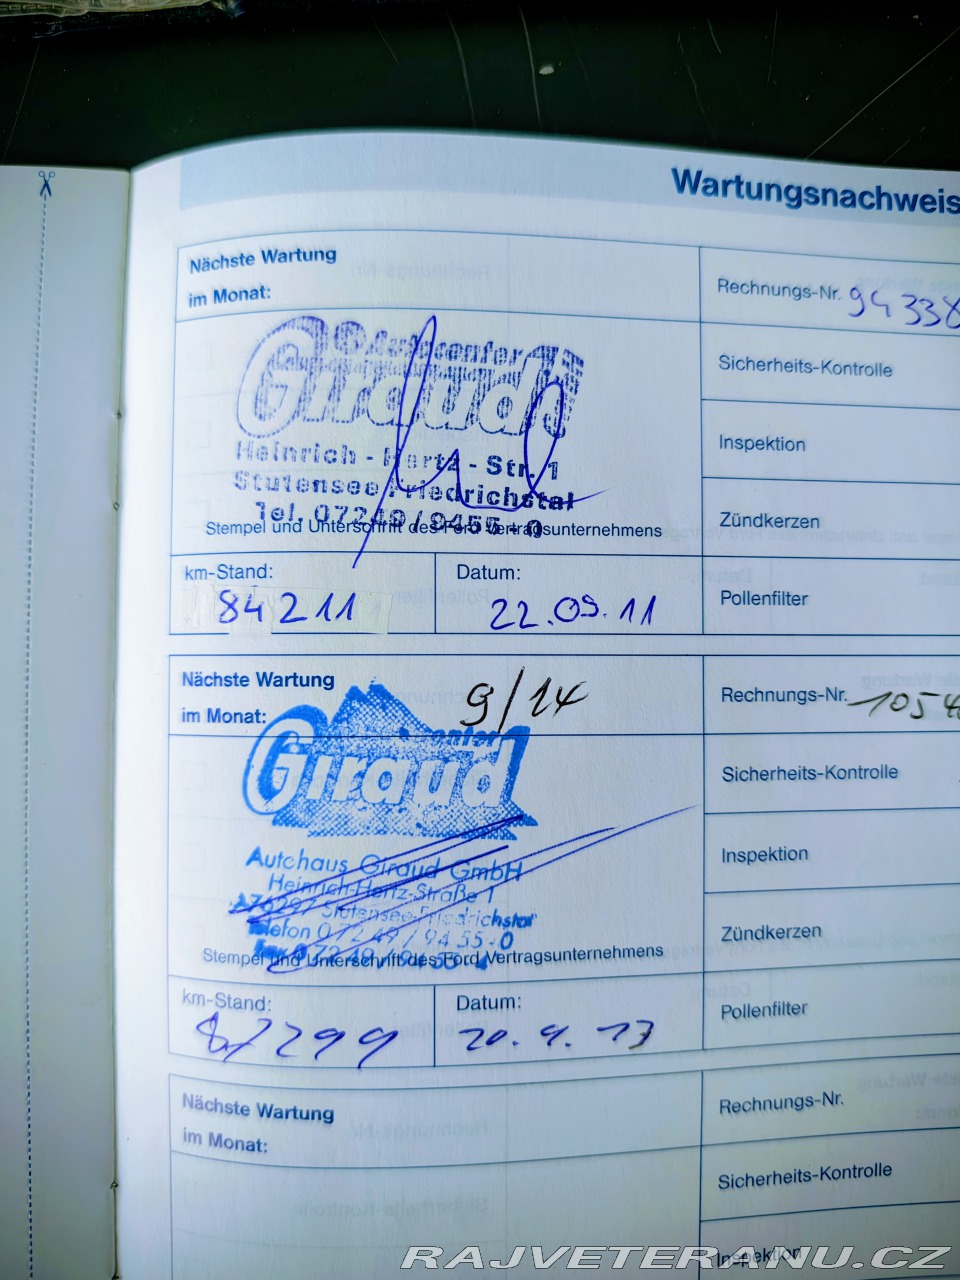 Wartungsnachweis
Nächste Wartung
im Monat:
Rechnungs-Nr. 94338
Autocenter
Giraud
Heinrich - Hertz - Str. 1
Stutensee Friedrichstal
Tel. 07249/9455-0
Stempel und Unterschrift des Ford Vertragsunternehmens
Sicherheits-Kontrolle
Inspektion
Zündkerzen
Pollenfilter
km-Stand:
84211
Datum:
22.09.11
Nächste Wartung
im Monat: 9/14
Rechnungs-Nr. 1054
Giraud
Autohaus Giraud GmbH
Heinrich-Hertz-Straße 1
76297 Stutensee-Friedrichstal
Telefon 07249/9455-0
Stempel und Unterschrift des Ford Vertragsunternehmens
Sicherheits-Kontrolle
Inspektion
Zündkerzen
Pollenfilter
km-Stand:
87299
Datum:
20.9.13
Nächste Wartung
im Monat:
Rechnungs-Nr.
Sicherheits-Kontrolle
Inspektion
RAJVETERANU.CZ